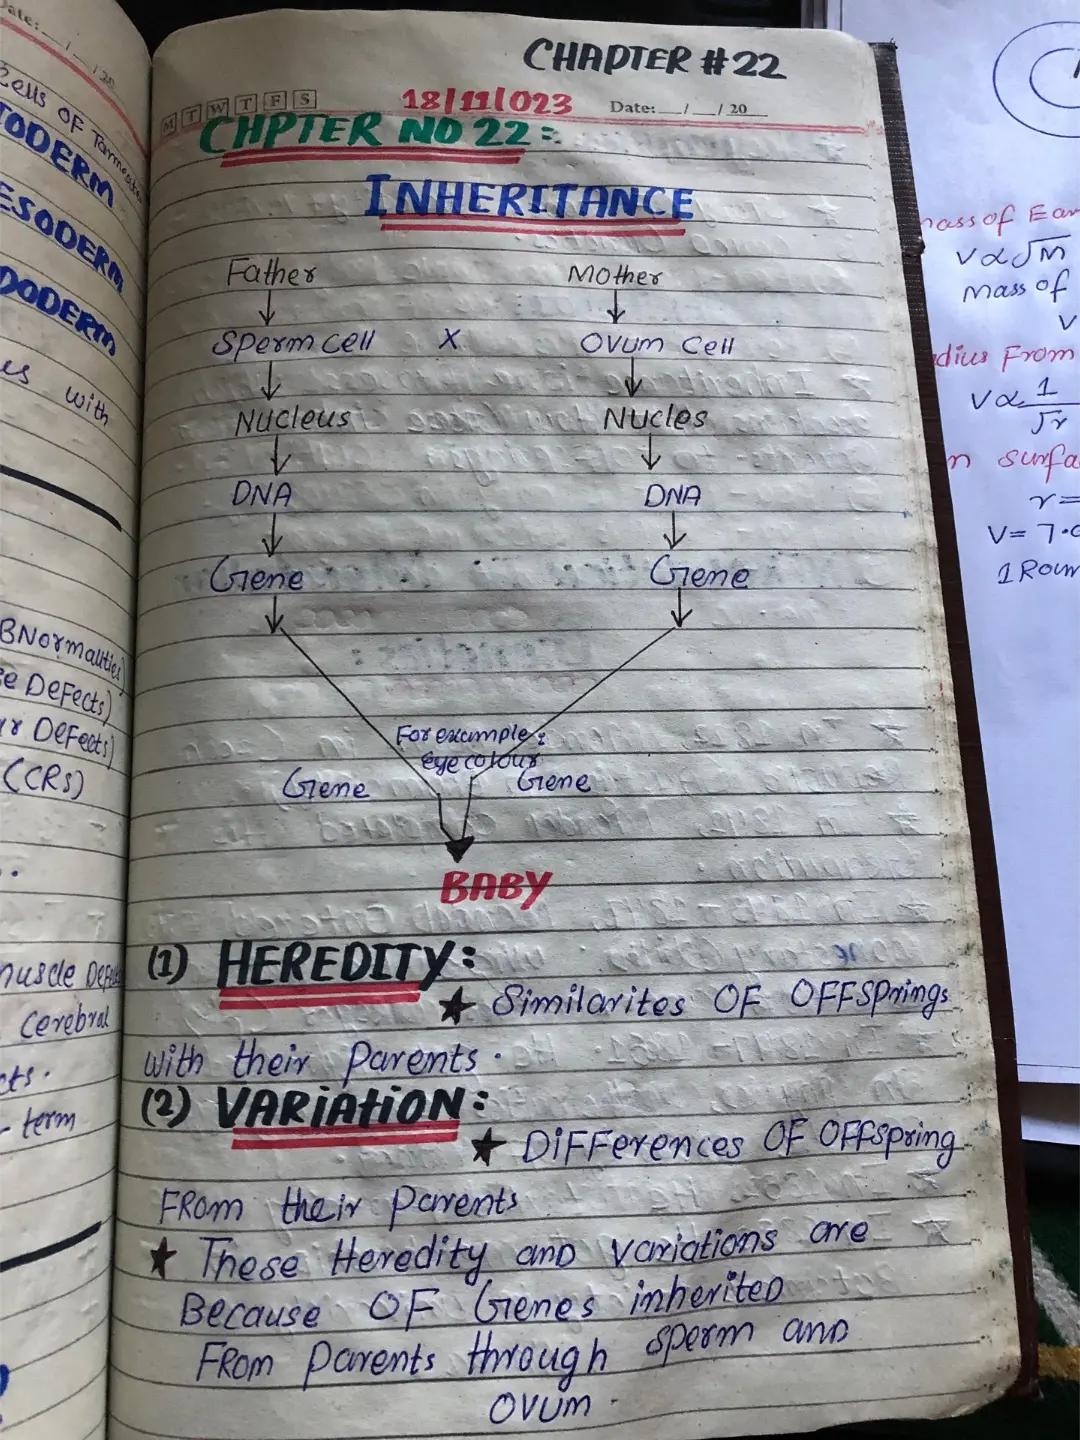 Date: __/__/20
Cells OF
TODERM
ESODERM
DODERM
es with
BNormalities)
se DeFects)
ar DeFects)
(CRS)
muscle
Cerebral
cts.
- term
CHAPTER #22
M T W T F S
18/11/023 Date: __/__/20__
CHPTER NO 22:
INHERITANCE
Father Mother
Sperm cell X OVum Cell
Nucleus Nucles
DNA DNA
Gene Gene
For example:
eye colour
Gene Gene
BABY
(1) HEREDITY:
★ Similarites OF OFFSPrings
with their Parents.
(2) VARIATION:
★ DIFFerences OF OFFspring
FRom their parents
★ These Heredity and variations are
Because OF Genes inherited
FRom parents through sperm and
OVUM.
mass of Ear
V∝√M
Mass of
V
dius From
V∝ 1/√r
n surfa
r=
V= 7.
1 Roun